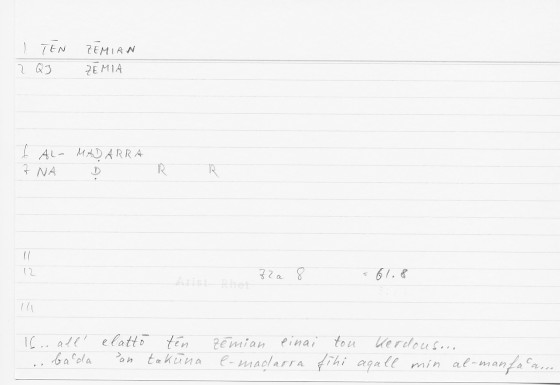 1 TĒN ZĒMIAN
2 QJ ZĒMIA
6 AL- MAḌARRA
7 NA Ḍ R R
11
12 32a 8 61.8
Arist. Rhet
14
15 .. all' elattō tēn zēmian einai tou kerdous...
.. baʿda ʾan takūna l-maḍarra fīhi aqall min al-manfaʿa...